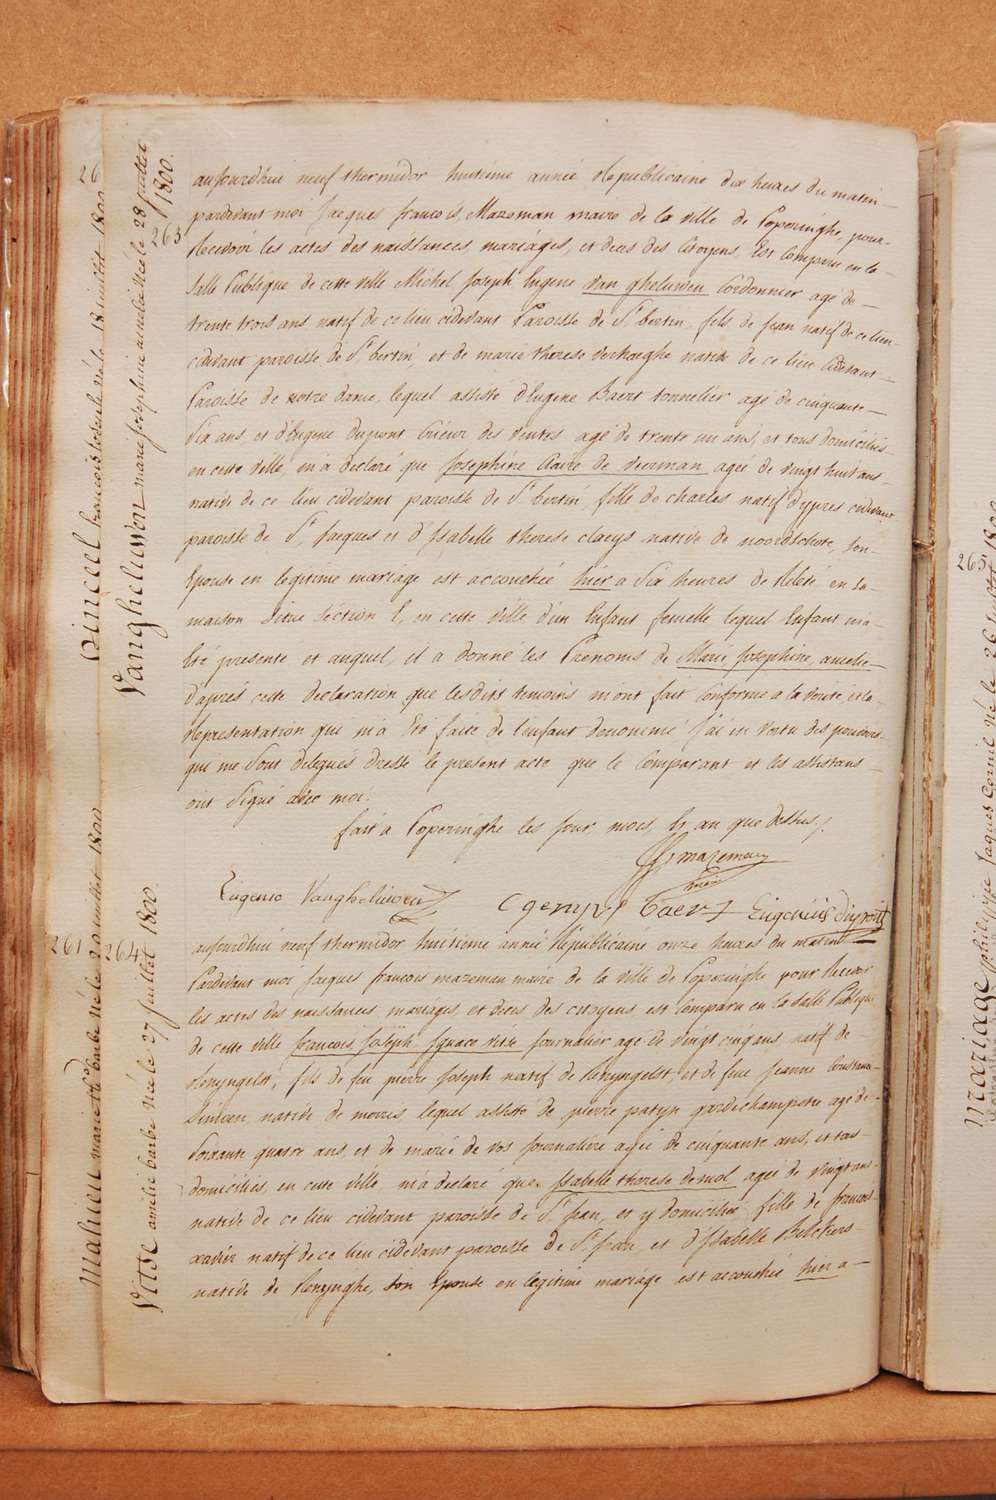 aujourdhui neuf thermidor huitieme année Republicaine dix heures du matin
pardevant moi Jacques francois Mazeman maire de la ville de Poperinghe, pour
Recevoir les actes des naissances, mariages, et deces des Citoyens Est Comparu en la
salle Publique de cette ville Michel Joseph Eugene van gheluwen Cordonnier agé de
trente trois ans natif de ce lieu cidevant Paroisse de St bertin, fils de Jean natif de ce lieu
cidevant paroisse de St bertin, et de marie therese verhaeghe native de ce lieu Cidevant
Paroisse de notre dame, lequel assisté d'Eugene Baert tonnelier agé de cinquante
six ans, et d'Eugene dupont Crieur des ventes agé de trente un ans, et tous domiciliés
en cette ville m'a declaré que Josephine Claire de veerman ageé de vingt huit ans
native de ce lieu cidevant paroisse de St bertin, fille de charles natif d'ypres cidevant
paroisse de St Jacques et d'Isabelle therese claeys native de noordschote, son
Epouse en legitime mariage est accoucheé hier a six heures de Relevé en sa
maison situe section E, en cette ville d'un Enfant femelle lequel Enfant m'a
Eté presenté et auquel il a donné les Prenoms de Marie Josephine amelie
d'aprés cette declaration que lesdits temoins m'ont fait Conforme a la verité, et la
Representation qui m'a Eté faite de l'enfant denommé J'ai en vertu des pouvoirs
qui me sont delegués dressé le present acte que le Comparant et les assistans
ont signé avec moi.
fait a Poperinghe les Jour, mois, Et an que dessus.
JF mazeman
maire
Eugenio Vanghelüwen Baert Eugenius dupont
aujourdhui neuf thermidor huitieme année Republicaine onze heures du matin
Pardevant moi Jacques francois mazeman maire de la ville de Poperinghe pour Recevoir
les actes des naissances mariages, et deces des citoyens est Comparu en la salle Publique
de cette ville francois Joseph Ignace vitse Journalier agé de vingt cinq ans natif de
Renyngelst, fils de feu pierre Joseph natif de Renyngelst, et de feue Jeanne Constance
Simoen native de morris lequel assisté de pierre patyn gardechampetre agé de
soixante quatre ans, et de marie de vos Journaliere ageé de cinquante ans, et tous
domiciliés en cette ville m'a declaré que Isabelle therese demol ageé de vingt ans
native de ce lieu cidevant paroisse de St Jean, et y domiciliée fille de francois
xavier natif de ce lieu cidevant paroisse de St Jean et d'Isabelle
native de Renynghe, son Epouse en legitime mariage est accouchée hier a
26
Pinceel francois né le 18 Juillet 1800
263
Vangheluwen marie Josephine amelie Née le 28 Juillet
1800.
261
Mahieu marie barbe Née le Juillet 1800
264
Vitse amelie barbe Née le 27 Juillet 1800.
265
Mariage philippe Jacques Née le 26 Juillet 1800